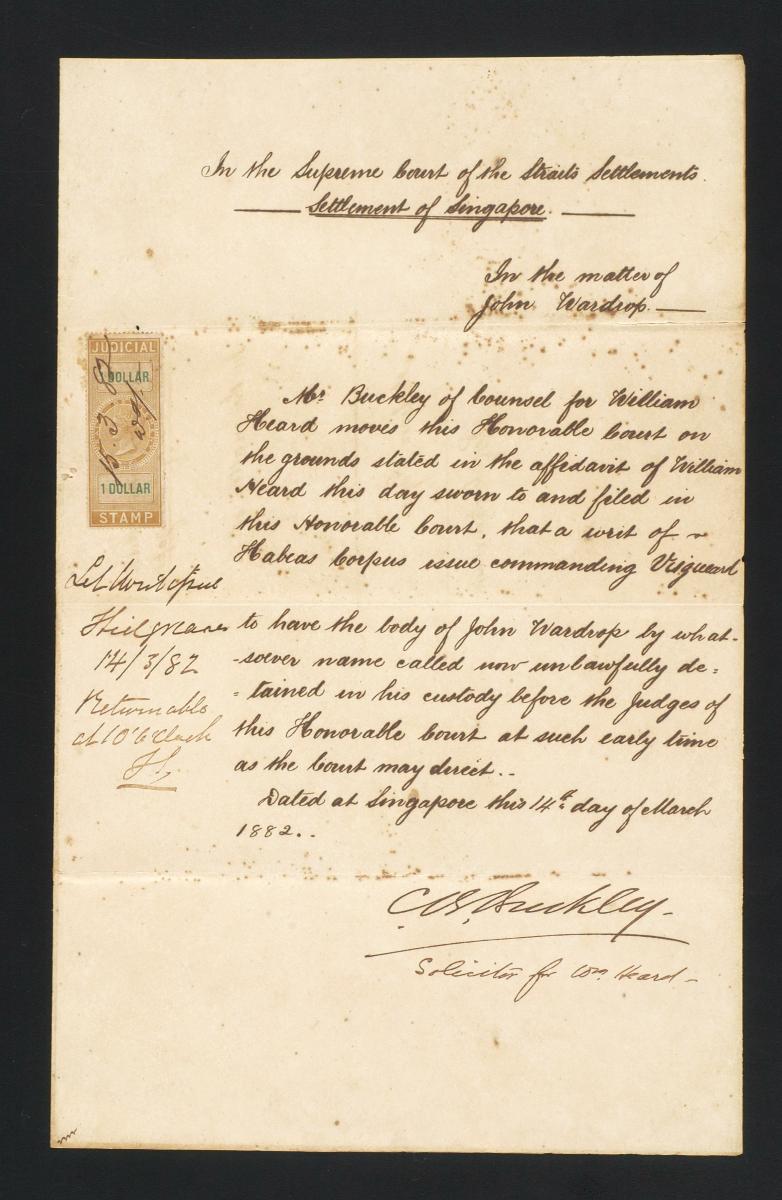 In the Supreme Court of the Straits Settlements.
Settlement of Singapore.
In the matter of
John Wardrop.
JUDICIAL
1 DOLLAR
15.3.82
1 DOLLAR
STAMP
Mr. Buckley of Counsel for William
Heard moves this Honorable Court on
the grounds stated in the affidavit of William
Heard this day sworn to and filed in
this Honorable Court, that a writ of
Habeas Corpus issue commanding
to have the body of John Wardrop by what-
-soever name called now unlawfully de=
=tained in his custody before the Judges of
this Honorable Court at such early time
as the Court may direct..
Dated at Singapore this 14th day of March
1882..
Let Writ issue
14/3/82
Returnable
at 10 o'Clock
C. B. Buckley
Solicitor for Wm. Heard